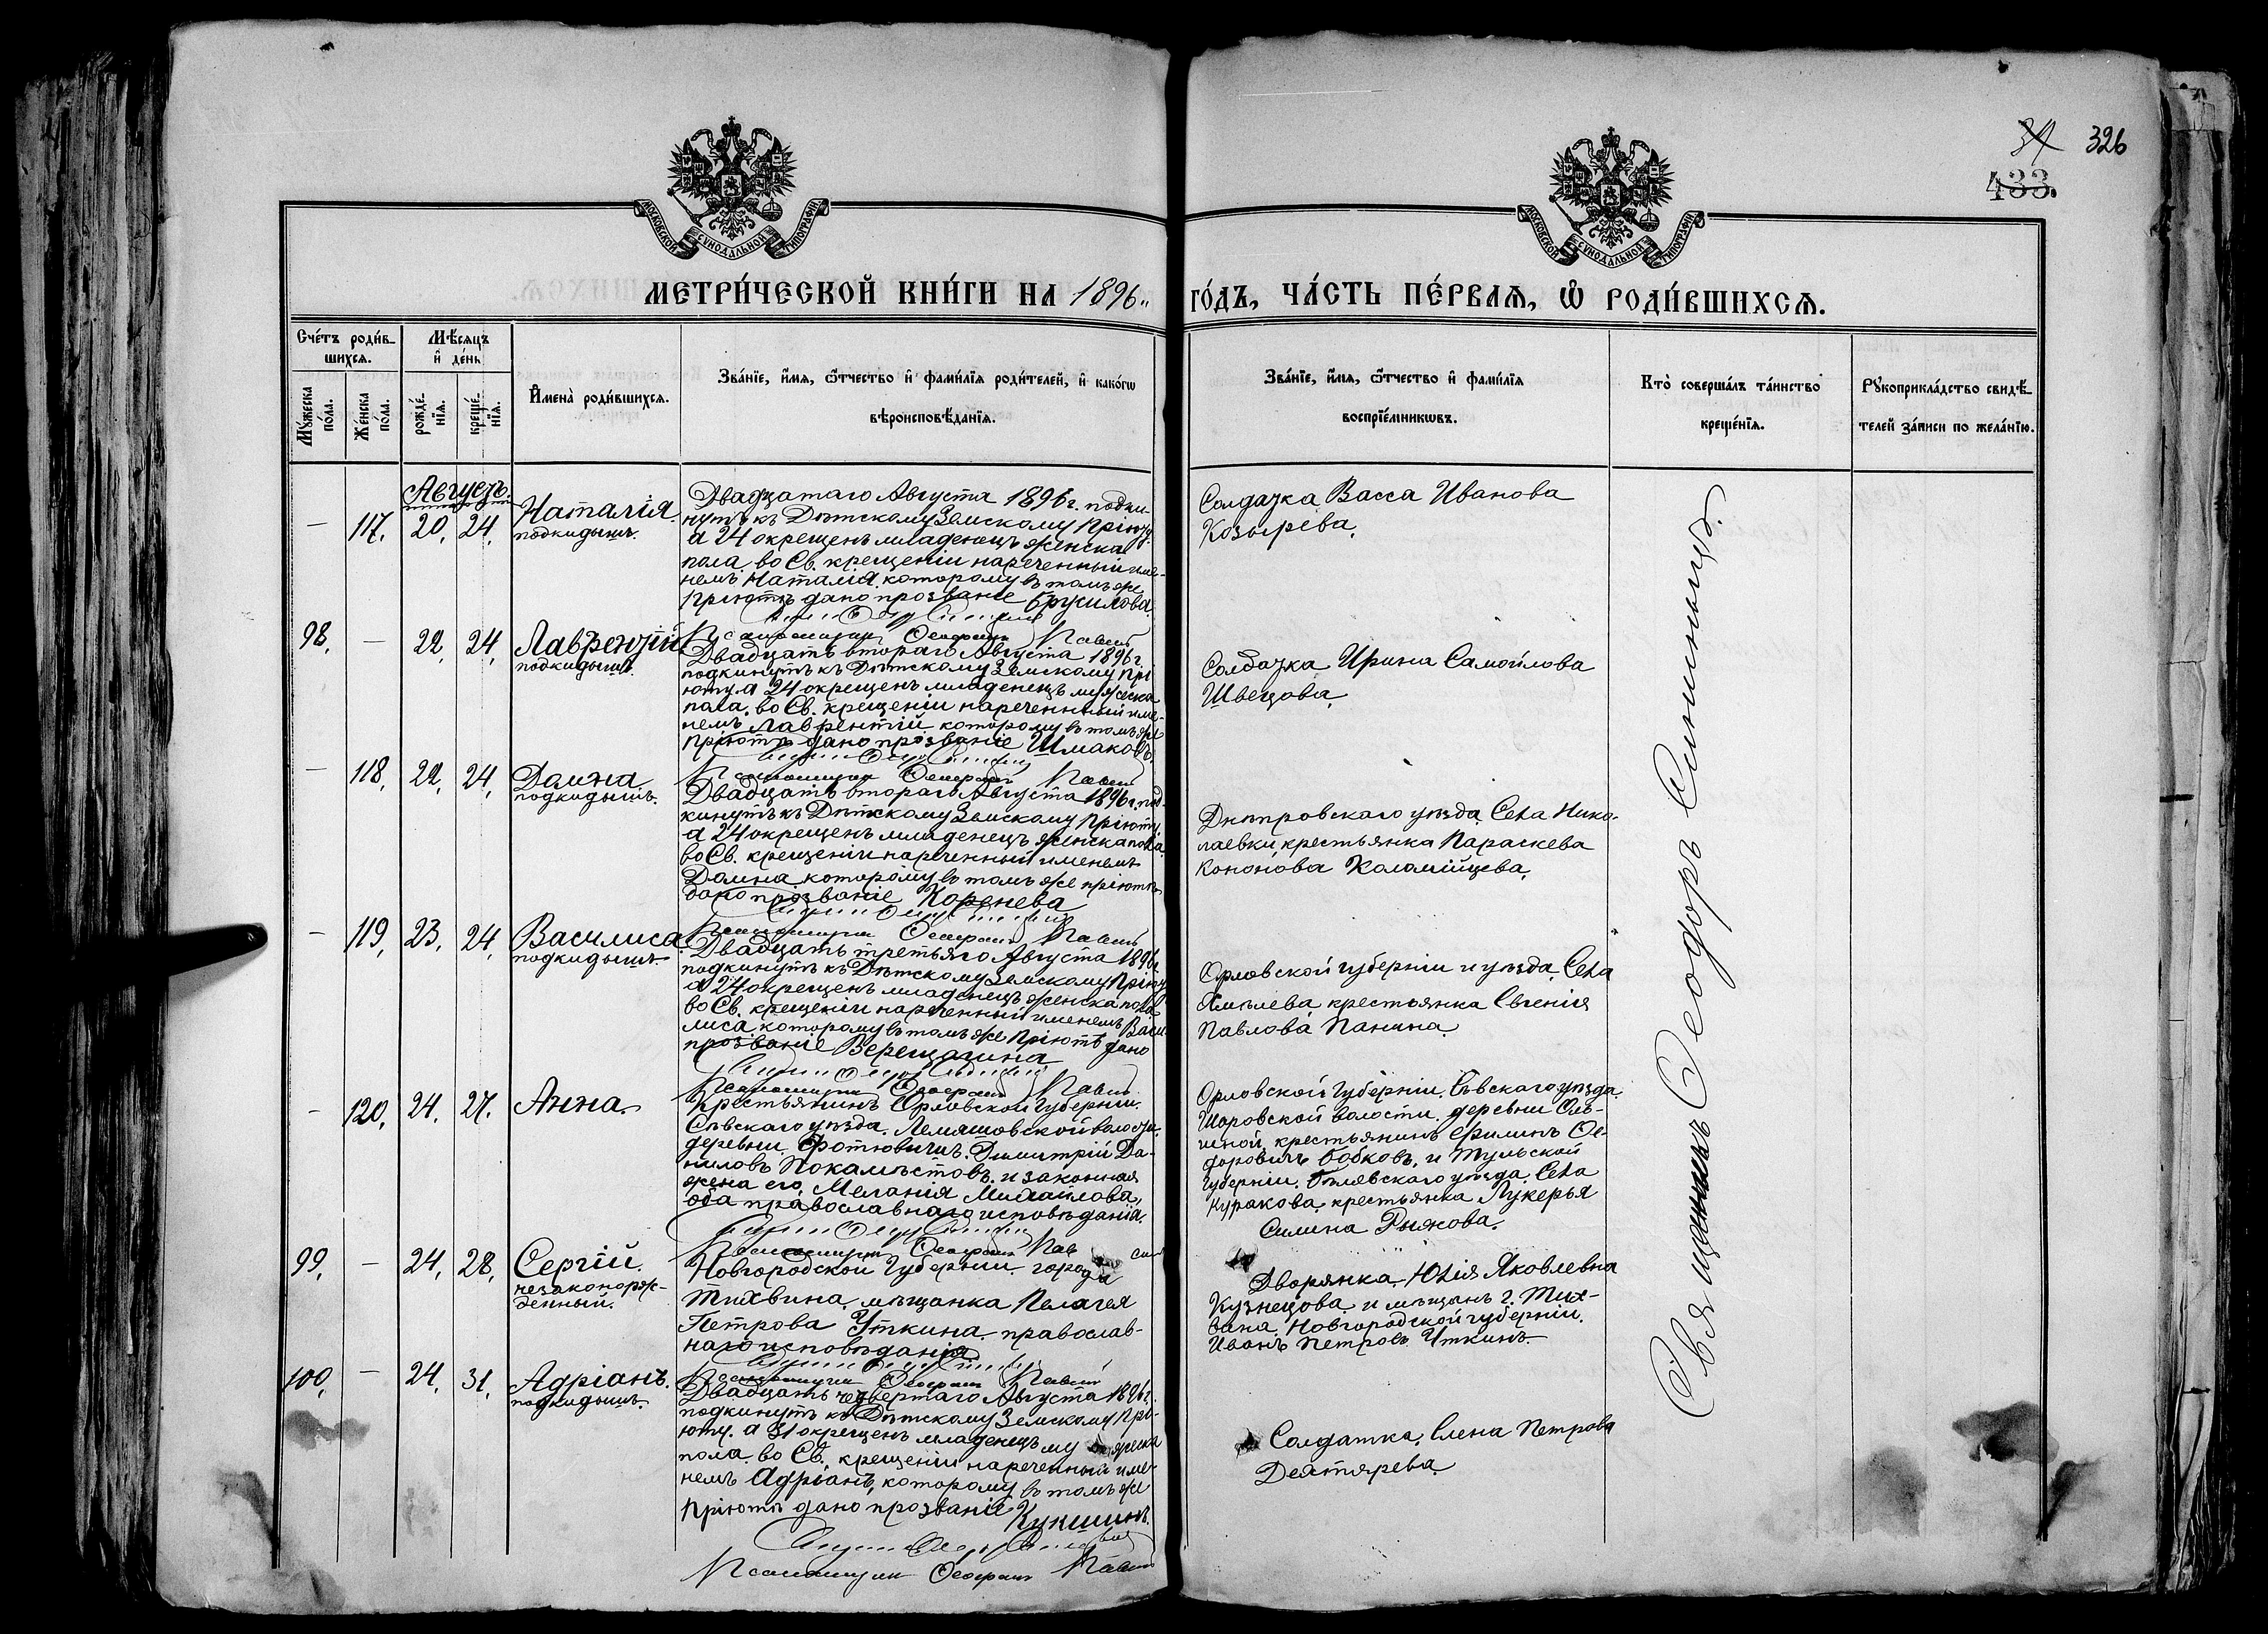 34 326
433.
МОСКОВСКОЙ СУНОДАЛЬНОЙ ТИПОГРАФІИ
МОСКОВСКОЙ СУНОДАЛЬНОЙ ТИПОГРАФІИ
МЕТРИ́ЧЕСКОЙ КНИ́ГИ НА 1896 ГО́ДЪ, ЧА́СТЬ ПЕ́РВАѦ, Ѽ РОДИ́ВШИХСѦ.
Счéтъ роди́в-
шихсѧ.
Мѣ́сѧцъ
и҆ дéнь
Мꙋ́жеска
пóла.
Жéнска
пóла.
рождé-
нїѧ.
крещé-
нїѧ.
И҆менà роди́вшихсѧ.
Звáнїе, и҆́мѧ, ѻ҆́тчество и҆ фами́лїѧ роди́телей, и҆ какóгѡ
вѣроисповѣ́данїѧ.
Звáнїе, и҆́мѧ, ѻ҆́тчество и҆ фами́лїѧ
воспрїéмникѡвъ.
Ктò совершáлъ тáинство
крещéнїѧ.
Рꙋкоприклáдство свидѣ́-
телей зáписи по желáнїю.
Августъ.
— 117. 20. 24. Наталія.
подкидышъ.
Двадцатаго Августа 1896 г. подки-
нутъ къ Дѣтскому Земскому Пріюту.
а 24 окрещенъ младенецъ женска
пола, во Св. крещеніи нареченный име-
немъ Наталія, которому въ томъ же
Пріютѣ дано прозваніе Брусилова
Псаломщикъ
Солдатка Васса Иванова
Козырева.
98. — 22. 24. Лаврентій
подкидышъ.
Двадцать втораго Августа 1896 г.
подкинутъ къ Дѣтскому Земскому Прі
юту, а 24 окрещенъ младенецъ мужеска
пола, во Св. крещеніи нареченный име-
немъ Лаврентій, которому въ томъ же
Пріютѣ дано прозваніе Шмаковъ.
Псаломщикъ
Солдатка Ирина Самойлова
Швецова.
— 118. 22. 24. Домна
подкидышъ.
Двадцать втораго Августа 1896 г. под-
кинутъ къ Дѣтскому Земскому Пріюту,
а 24 окрещенъ младенецъ женска пола,
во Св. крещеніи нареченный именемъ
Домна, которому въ томъ же пріютѣ
дано прозваніе Коренева
Псаломщикъ
Днѣпровскаго уѣзда, Села Нико-
лаевки, крестьянка Параскева
Кононова Коломійцева.
— 119. 23. 24. Василиса
подкидышъ.
Двадцать третьяго Августа 1896 г.
подкинутъ къ Дѣтскому Земскому Пріюту
а 24 окрещенъ младенецъ женска пола
во Св. крещеніи нареченный именемъ Васи
лиса, которому въ томъ же Пріютѣ дано
прозваніе Верещагина
Псаломщикъ
Орловской губерніи и уѣзда, Села
крестьянка Евгенія
Павлова Панина.
— 120. 24. 27. Анна.
Крестьянинъ Орловской Губерніи,
Сѣвскаго уѣзда, Лемяшовской волости,
деревни Фотювичи, Димитрій Да-
ниловъ Покамѣстовъ, и законная
жена его, Меланія Михайлова,
оба православнаго исповѣданія.
Псаломщикъ
Орловской Губерніи, Сѣвскаго уѣзда,
Шаровской волости, деревни Оль-
шной, крестьянинъ Филипъ Ѳе-
доровичъ Бобковъ, и Тульской
Губерніи, Бѣлевскаго уѣзда, Села
Куракова, крестьянка Лукерья
Силина Рыжова.
99. — 24. 28. Сергій.
незаконорож-
денный.
Новгородской Губерніи, города
Тихвина, мѣщанка Пелагея
Петрова Уткина, православ-
наго исповѣданія
Псаломщикъ
Дворянка Юлія Яковлевна
Кузнецова и мѣщанъ г. Тих-
вина, Новгородской губерніи,
Иванъ Петровъ Уткинъ.
100. — 24. 31. Адріанъ.
подкидышъ.
Двадцать четвертаго Августа 1896 г.
подкинутъ къ Дѣтскому Земскому Прі-
юту, а 31 окрещенъ младенецъ мужеска
пола, во Св. крещеніи нареченный име-
немъ Адріанъ, которому въ томъ же
Пріютѣ дано прозваніе Кукшинъ.
Псаломщикъ
Солдатка, Елена Петрова
Дехтярева.
Священникъ Ѳеодоръ